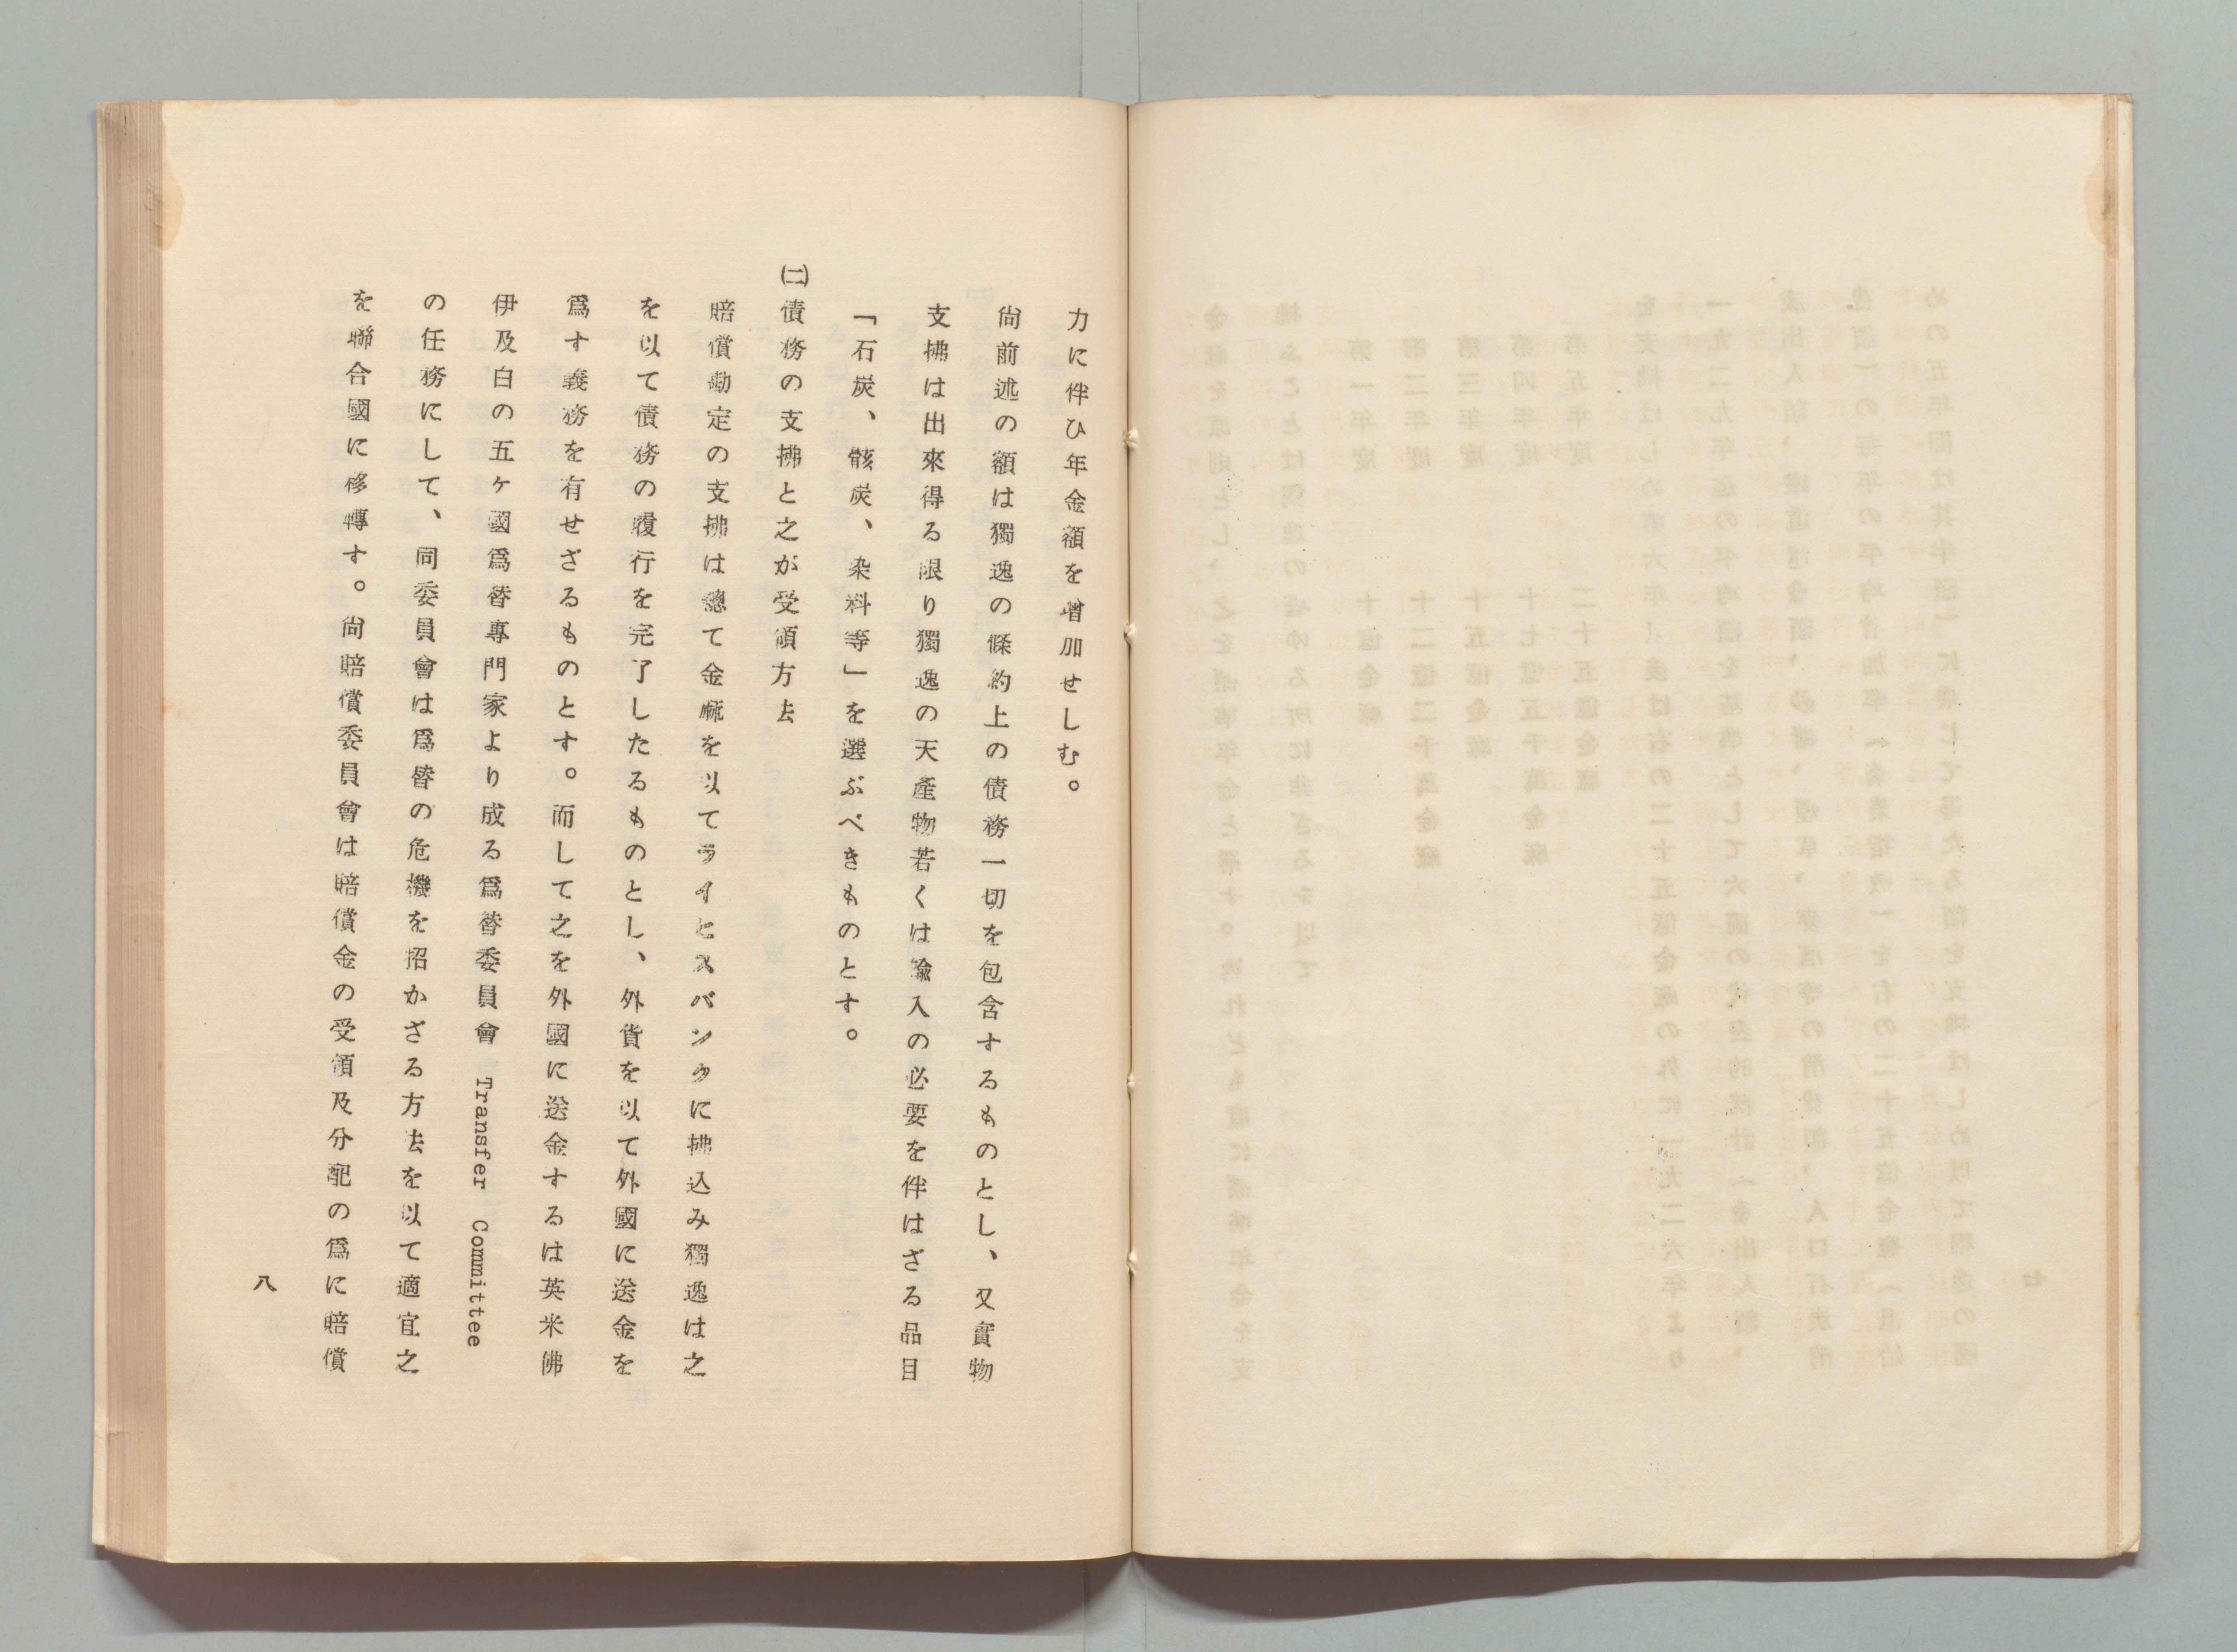 力に伴ひ年金額を增加せしむ。
尙前述の額は獨逸の條約上の債務一切を包含するものとし、又實物
支拂は出來得る限り獨逸の天產物若くは輸入の必要を伴はざる品目
「石炭、骸炭、染料等」を選ぶべきものとす。
㈡債務の支拂と之が受領方法
賠償勘定の支拂は總て金麻を以てライヒスバンクに拂込み獨逸は之
を以て債務の履行を完了したるものとし、外貨を以て外國に送金を
爲す義務を有せざるものとす。而して之を外國に送金するは英米佛
伊及白の五ヶ國爲替專門家より成る爲替委員會 Transfer Committee
の任務にして、同委員會は爲替の危機を招かざる方法を以て適宜之
を聯合國に移轉す。尙賠償委員會は賠償金の受領及分配の爲に賠償
八